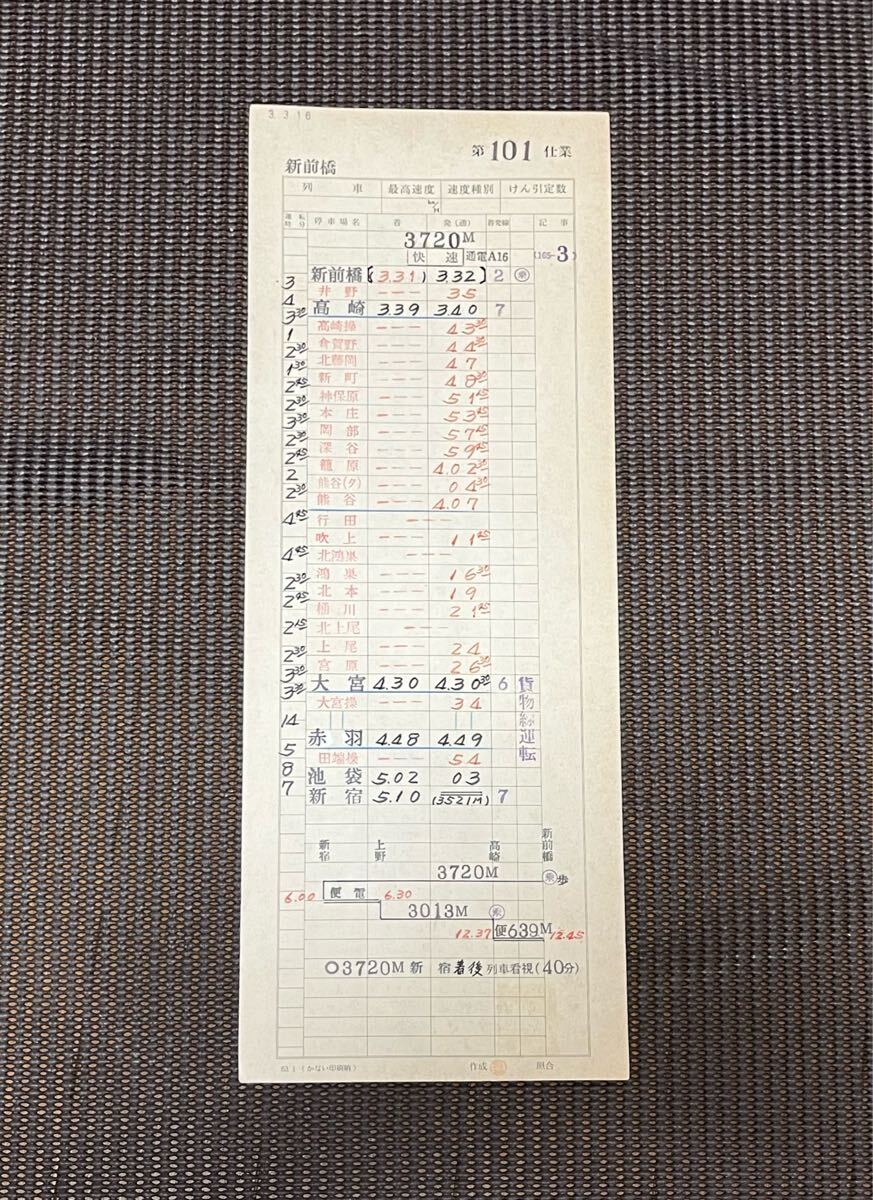 3.3.16
第 101 仕業
新前橋
列 車 最高速度 速度種別 けん引定数
km/H
運転時分 停車場名 着 発(通) 着発線 記 事
3720M
快 速 通電A16 (165-3)
新前橋 【(3.31) 3.32】 2 乗
3 井 野 --- 35
4 高 崎 3.39 3.40 7
3 30 高崎操 --- 43 30
1 倉賀野 --- 44 30
2 30 北藤岡 --- 47
1 30 新 町 --- 48 30
2 45 神保原 --- 51 15
2 30 本 庄 --- 53 45
3 30 岡 部 --- 57 15
2 30 深 谷 --- 59 45
2 45 籠 原 --- 4.02 30
2 熊谷(タ) --- 04 30
2 30 熊 谷 --- 4.07
行 田 ---
4 45 吹 上 --- 11 45
北鴻巣 ---
4 45 鴻 巣 --- 16 30
2 30 北 本 --- 19
2 45 桶 川 --- 21 45
北上尾 ---
2 15 上 尾 --- 24
2 30 宮 原 --- 26 30
3 30 大 宮 4.30 4.30 30 6 貨物線運転
3 30 大宮操 --- 34
14 赤 羽 4.48 4.49
5 田端操 --- 54
8 池 袋 5.02 03
7 新 宿 5.10 (3521M) 7
新宿 上野 高崎 新前橋
3720M 乗 歩
6.00 便 電 6.30
3013M 乗
12.37 便639M 12.45
○3720M 新 宿 着後 列車看視(40分)
63.1 (かない印刷納) 作成 照合